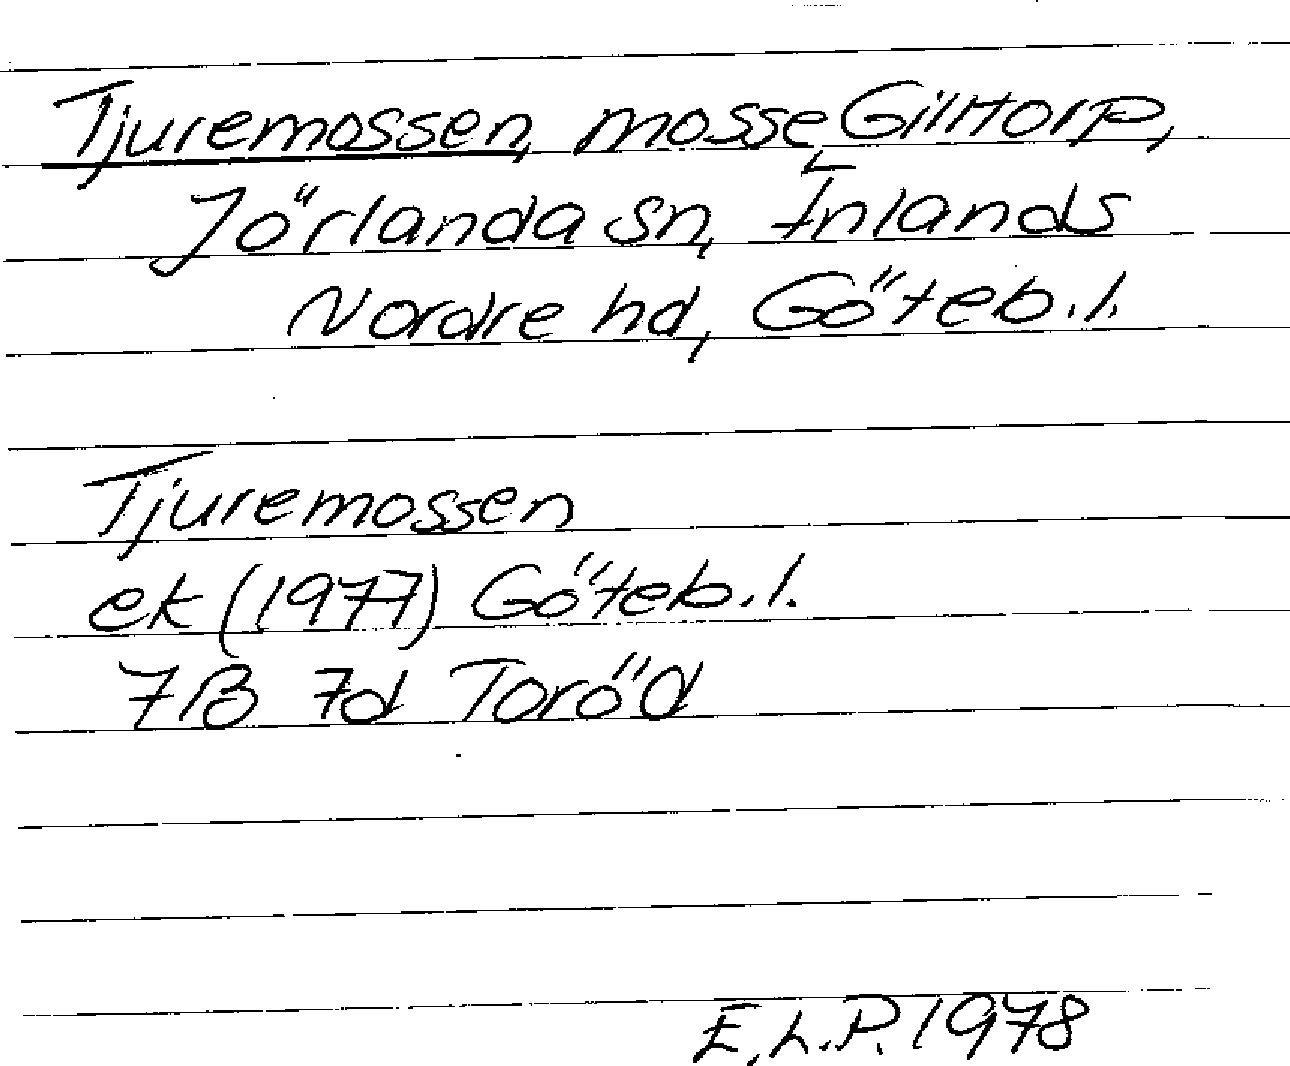 Tjuremossen, mosse, Gilltorp,
Jörlanda sn, Inlands
Nordre hd, Göteb. l.
Tjuremossen
ek (1977) Göteb. l.
7B 7d Toröd
E.L.P. 1978